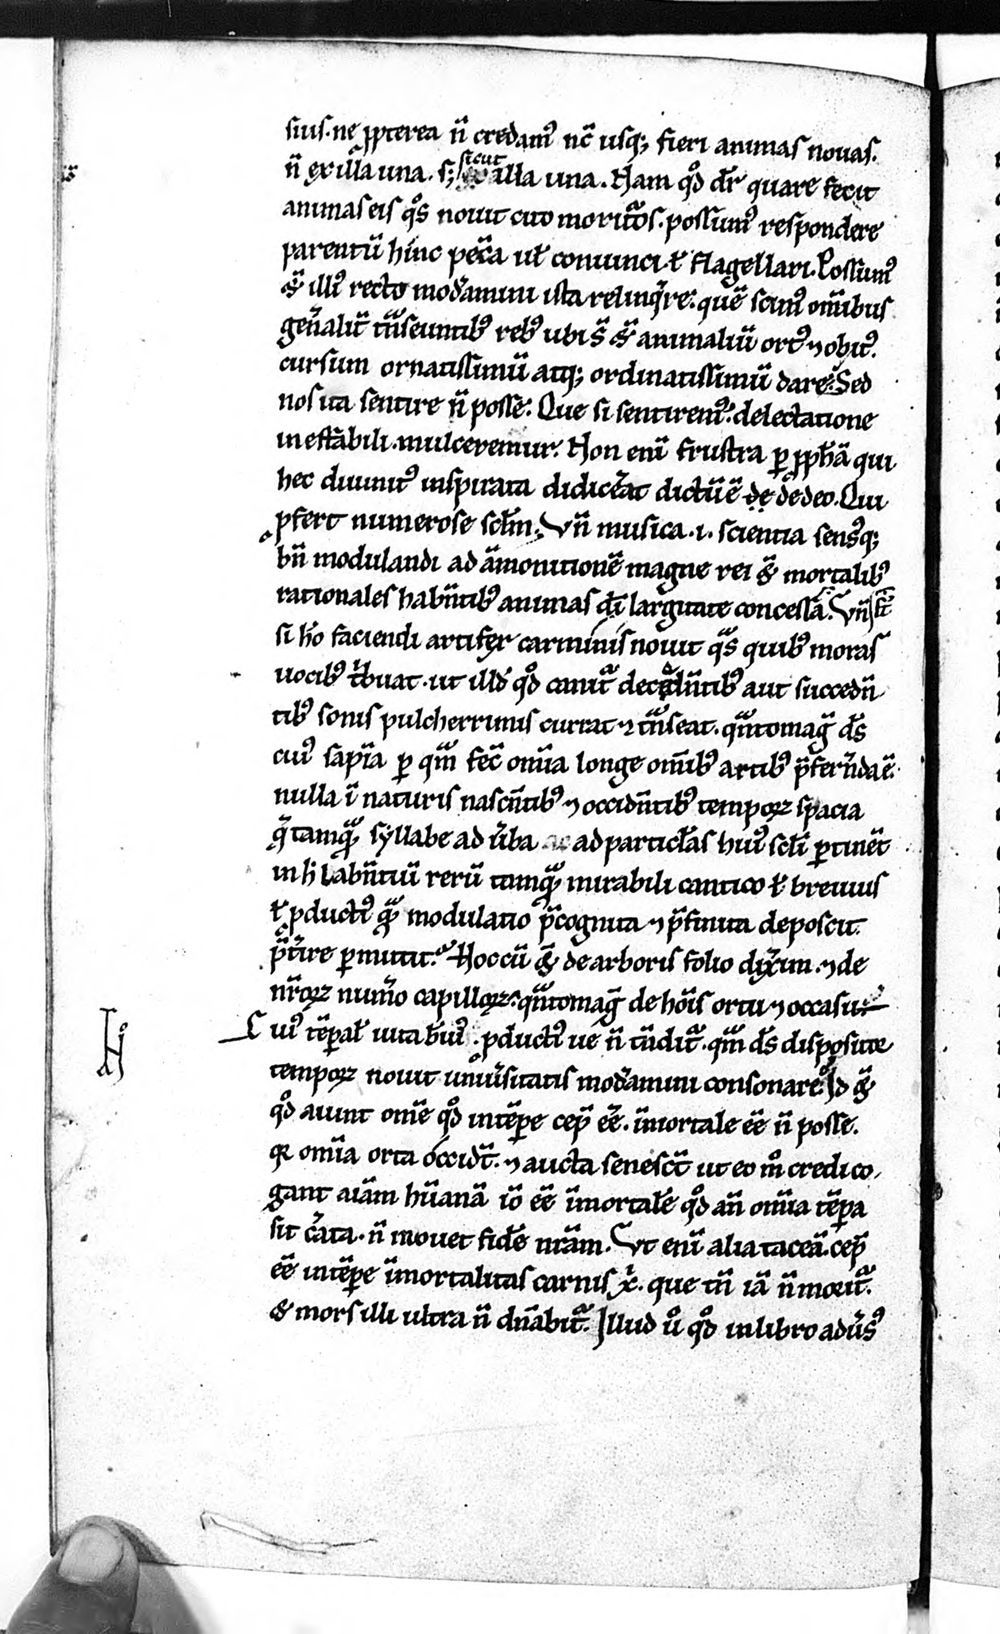 sius. ne ꝓpterea n̄ credamꝰ nc̄ usq; fieri animas nouas.
n̄ ex illa una. s; sicut illa una. Nam qd̕ dr̄ quare fecit
animas eis qͦs nouit cito moritᵃos. possumꝰ respondere
parentū hinc pec̄a ul̕ conuinci. ł flagellari. Possumꝰ
&̄ illiꝰ recto mod̕amini ista relinq̄re. quē scimꝰ om̄ibus
gen̄alit̄ tᵃnseuntibꝰ rebꝰ ubi s̄ &̄ animaliū ortꝰ ⁊ obitꝰ.
cursum ornatissimū atq; ordinatissimū dare. Sed
nos ita sentire n̄ posse. Que si sentiremꝰ. delectatione
ineffabili mulceremur. Non eni̅ frustra ꝑ ꝓph̄ā qui
hec diuinitꝰ inspirata didic̄at dictū ē de deo. Qui
ꝓfert numerose scl̄m. Vn̄ musica .i. scientia sensꝰq;
bn̄ modulandi ad āmonitionē magne rei &̄ mortalibꝰ
rationales habn̄tibꝰ animas di̅ largitate concessa ē. Vn̄
si hō faciendi artifex carminis nouit qᵃs quibꝰ moras
uocibꝰ tⁱbuat. ut illd̕ qd̕ canit̄ deced̄ntibꝰ aut succedn̄
tibꝰ sonis pulcherrimis currat ⁊ tᵃnseat. qᵃntomag̕ ds̄
cuiꝰ sapīa ꝑ qᵃm fec̄ om̄ia longe om̄ibꝰ artibꝰ p̄fern̄da ē.
nulla i̅ naturis nascn̄tibꝰ ⁊ occidn̄tibꝰ tempoꝝ spacia
q̄ tamqᵃ syllabe ad ūba ac ad particl̄as huiꝰ scl̄i ꝑtinēt
in h̄ labn̄tiū rerū tamqᵃ mirabili cantico ł breuius
ł ꝓductiꝰ qᵃ modulatio p̄cognita ⁊ p̄finita deposcit.
p̄t̄ire ꝑmittit. Hoc cū &̄ de arboris folio dix̄im. ⁊ de
nr̄oꝝ num̄o capilloꝝ. qᵃntomag̕ de hōis ortu ⁊ occasu.
Cuiꝰ tēꝑal̕ uita breuiꝰ ꝓductiꝰ ue n̄ tn̄dit̄. qᵃm ds̄ dispositor
tempoꝝ nouit uniūsitatis mod̕amini consonare. Id &̄
qd̕ aiunt om̄e qd̕ in tēꝑe cep̄ eē. i̅mortale eē n̄ posse.
qꝛ om̄ia orta occidt̄. ⁊ aucta senesct̄ ut eo mͦ credi co
gant aīam hūanā iō eē i̅mortale qd̕ an̄ om̄ia tēꝑa
sit c̄ata. n̄ mouet fidē nr̄am. Vt eni̅ alia taceā. cep̄
eē in tēꝑe i̅mortalitas carnis xⁱ. que tn̄ iā n̄ morit̄.
& mors illi ultra n̄ dn̄abit̄. Illud ū qd̕ in libro aduꝰsꝰ